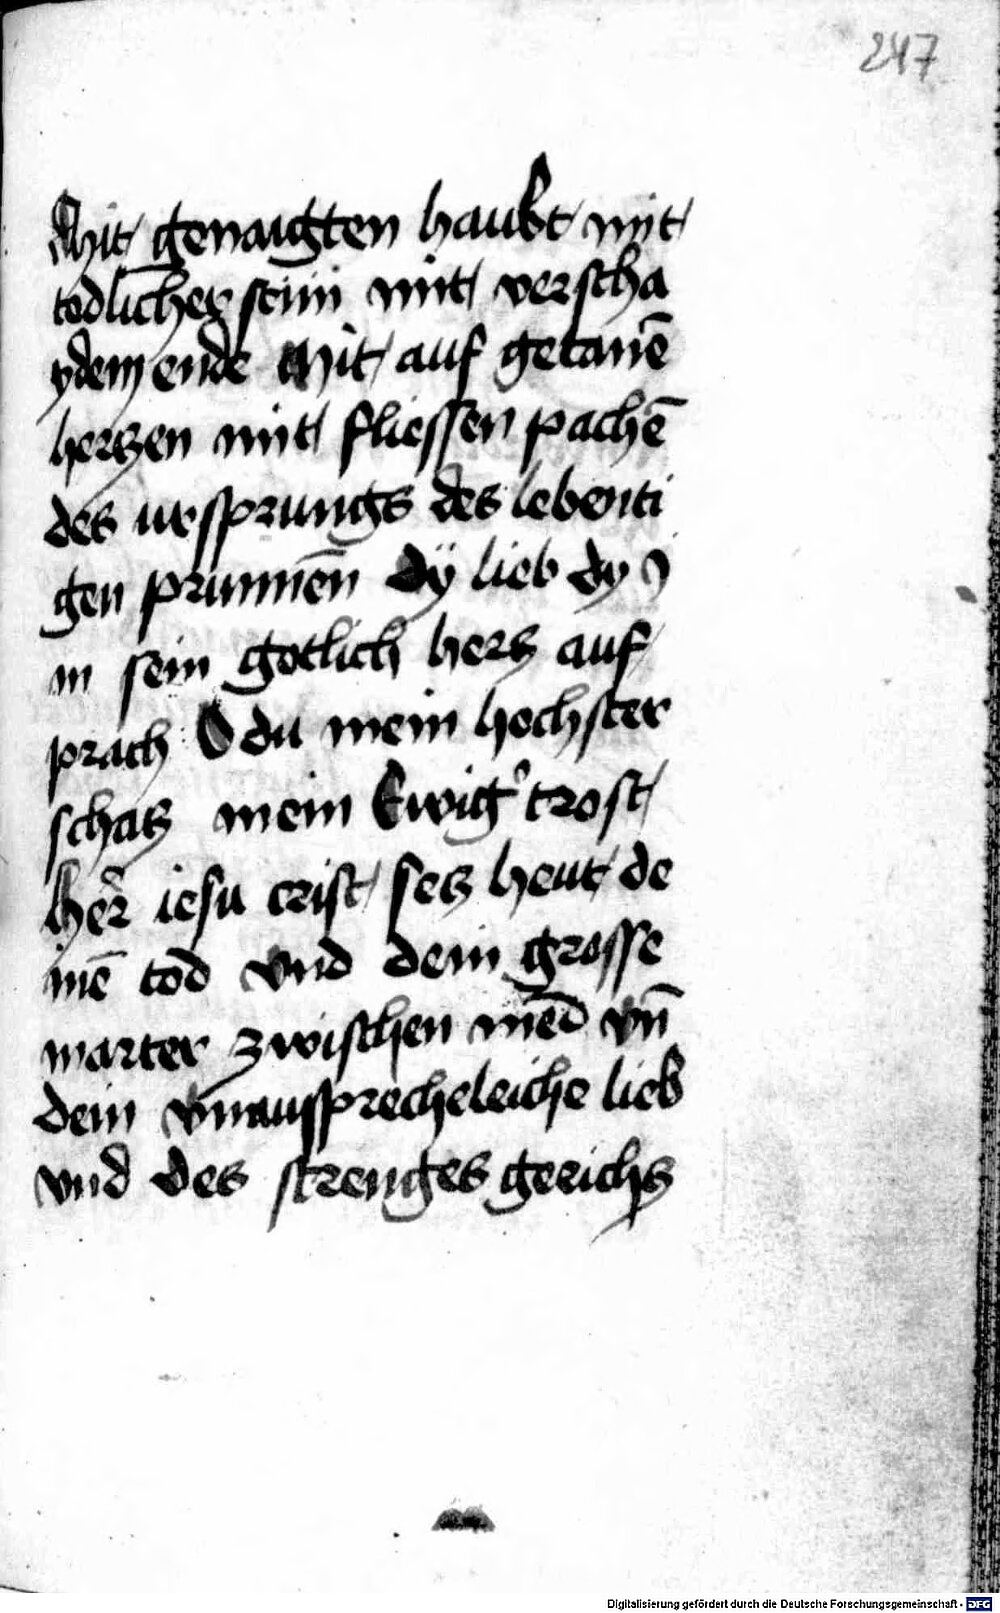 247
Mit genaigten haubt mit
todlicher stim̅ mit verscha
ydem ende Mit auf getanē
herczen mit fliessen pachē
des ursprungs des lebenti
gen prunnen̄ Dy̋ lieb dy
in sein gotlich hercz auf
prach O du mein hochster
schacz mein Ewig' trost
her̄ iesu crist secz heut de
inē tod vnd dein grosse
marter zwischen mein̄ vn̄
dein vnaussprecheleiche lieb
vnd des strenges gerichs
Digitalisierung gefördert durch die Deutsche Forschungsgemeinschaft - DFG